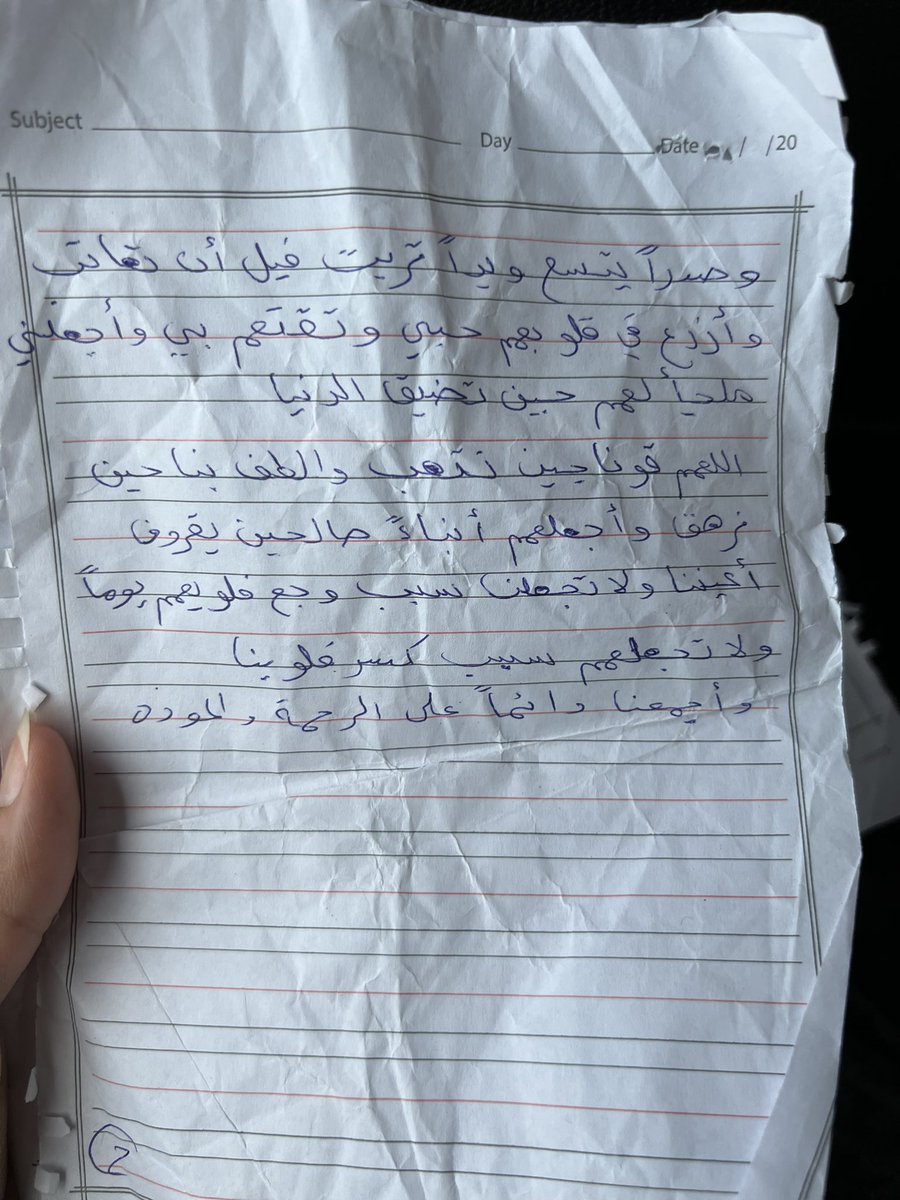 Subject Day Date / /20
وصدراً يتسع ويداً تربت قبل أن تعاتب
وأزرع في قلوبهم حبي وثقتهم بي وأجعلني
ملجأ لهم حين تضيق الدنيا
اللهم قونا حين نتعب والطف بنا حين
نرهق وأجعلهم أبناءً صالحين يقرون
أعيننا ولا تجعلنا سبب وجع قلوبهم يوماً
ولا تجعلهم سبب كسر قلوبنا
وأجمعنا دائماً على الرحمة والموده
2